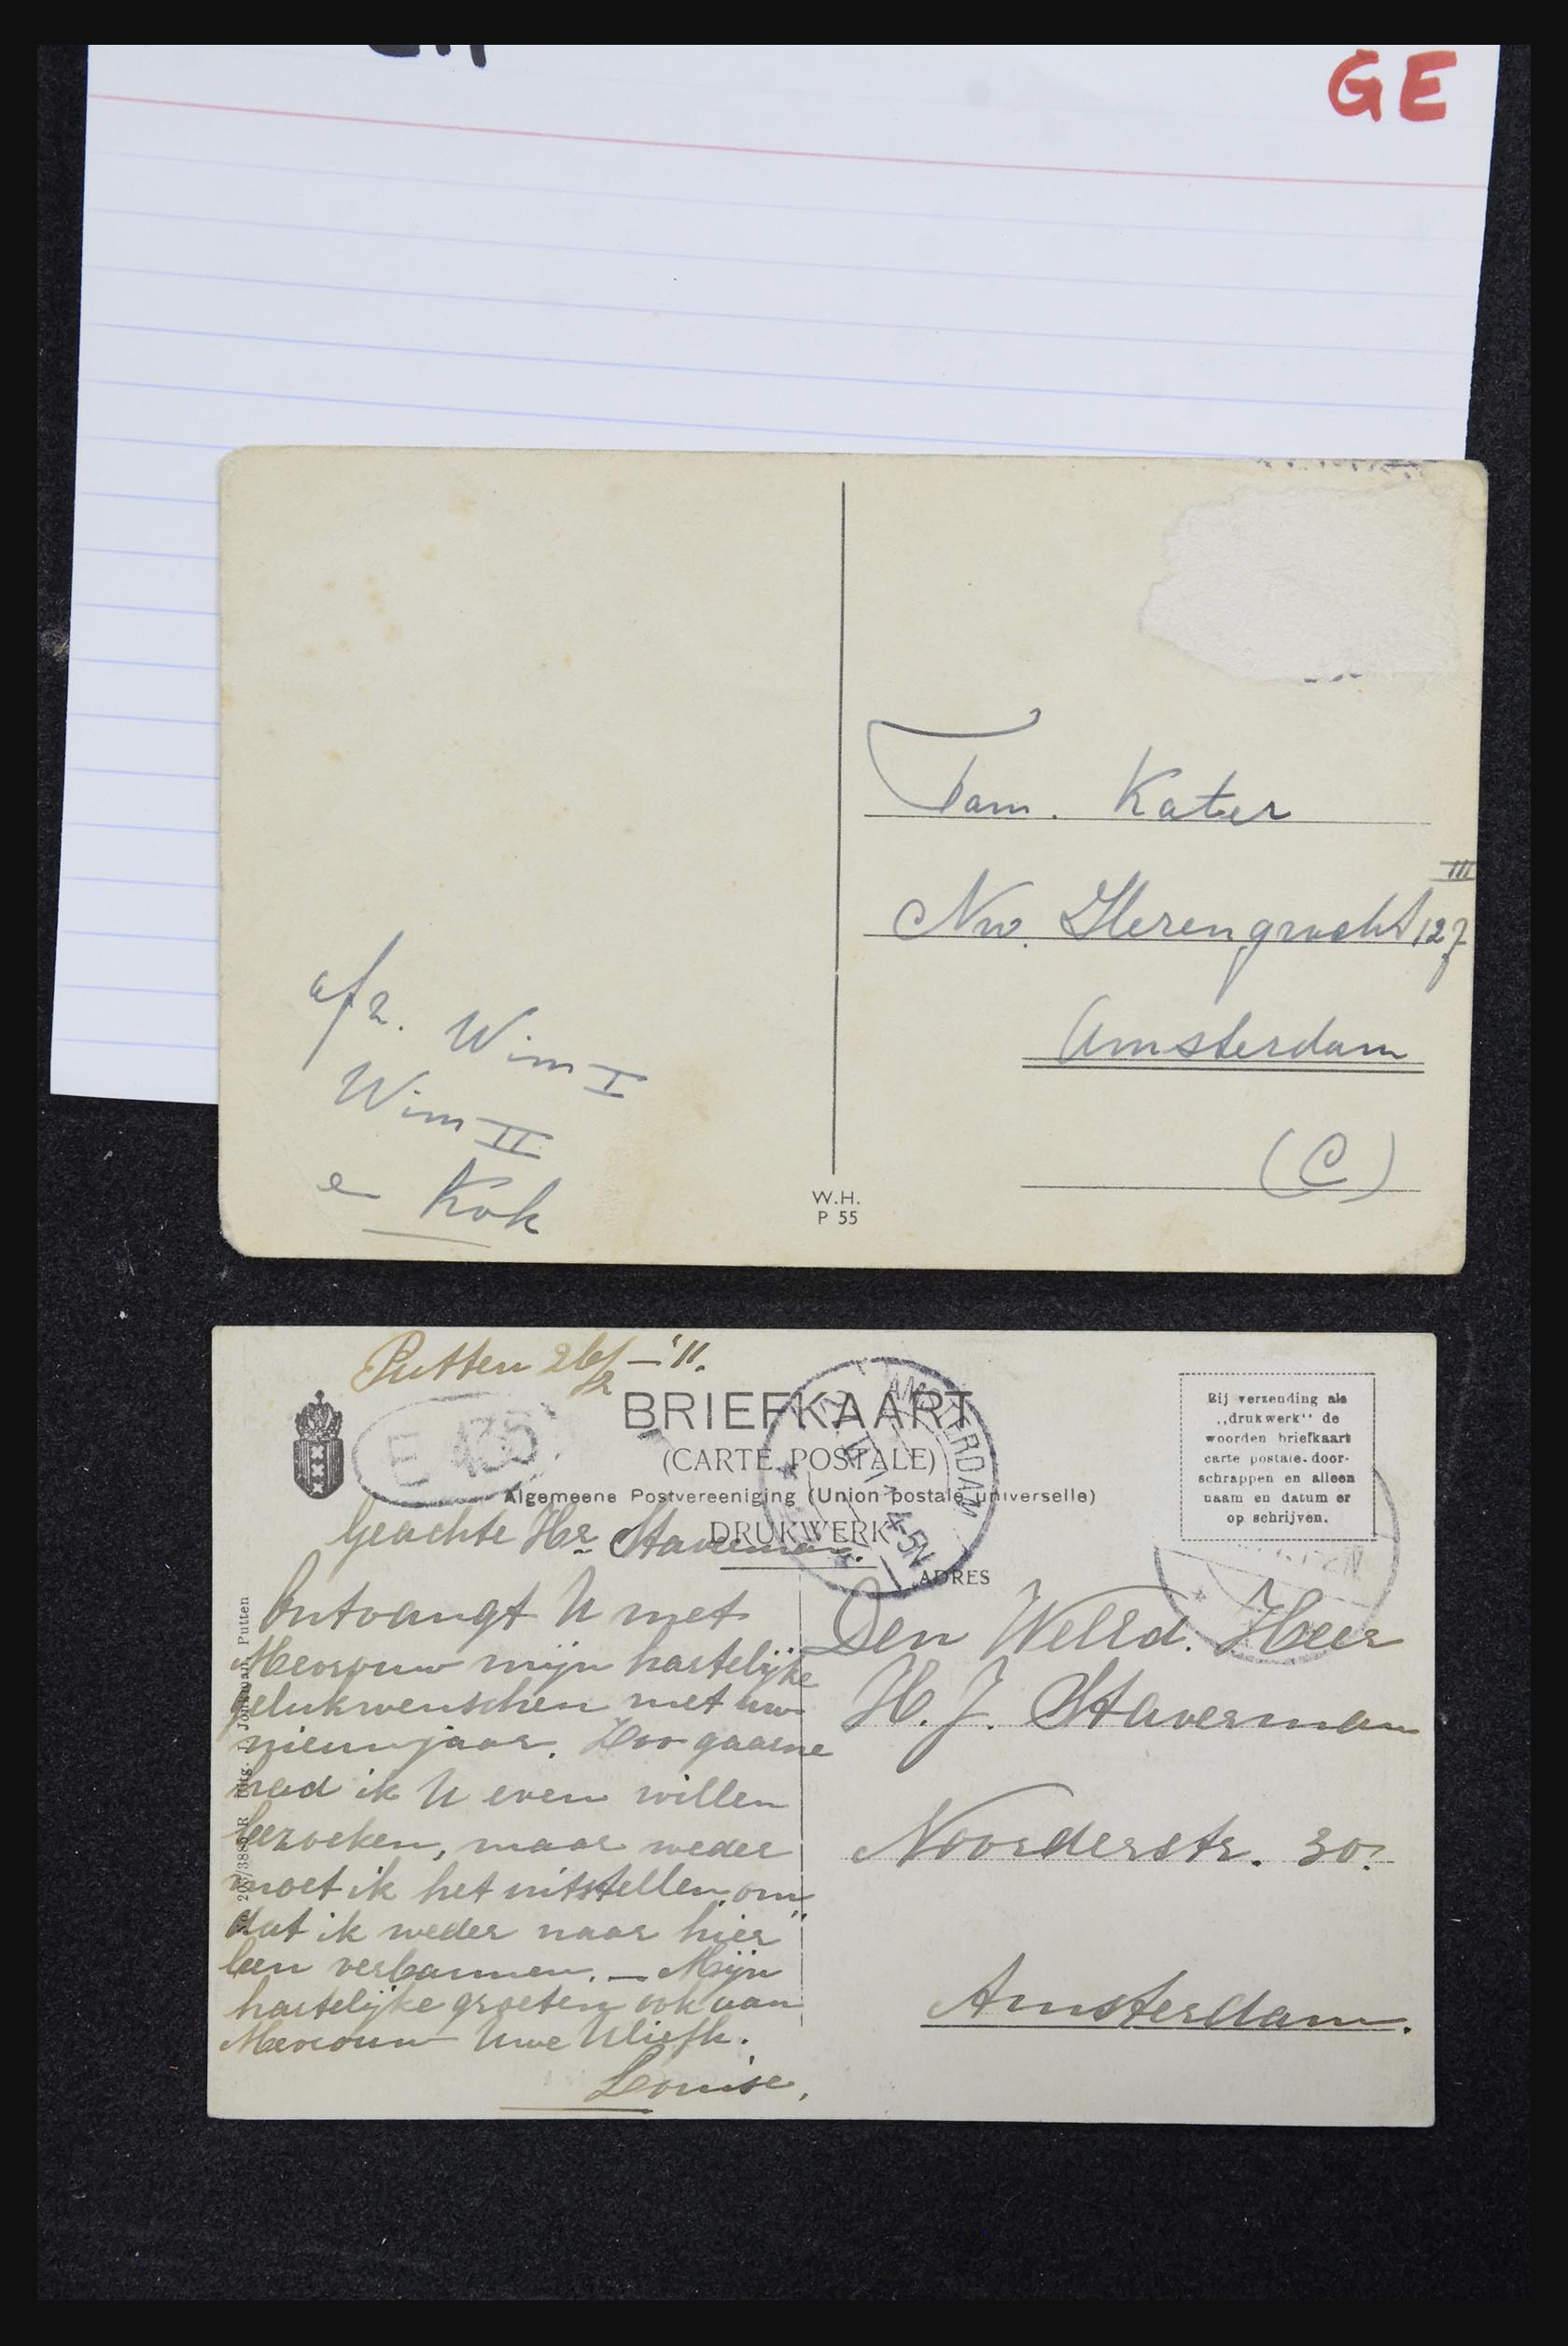 GE
Fam. Kater
Nw. Herengracht 127 III
Amsterdam
(C)
afz. Wim I
Wim II
en Kok
W.H.
P 55
Putten 26/2 – '11.
BRIEFKAART
(CARTE POSTALE)
Algemeene Postvereeniging (Union postale universelle)
DRUKWERK
ADRES
Bij verzending als
„drukwerk" de
woorden briefkaart
carte postale-door-
schrappen en alleen
naam en datum er
op schrijven.
E 435
AMSTERDAM
4-5N
Geachte Hr Staverman.
Ontvangt U met
Mevrouw mijn hartelijke
gelukwenschen met uw
nieuwjaar. Zoo gaarne
had ik U even willen
bezoeken, maar weder
moet ik het uitstellen om
dat ik weder naar hier
ben verbannen. — Mijn
hartelijke groeten ook aan
Mevrouw Uwe
Louise.
Den WelEd. Heer
H. J. Staverman
Noorderstr. 30.
Amsterdam.
Uitg. J. Jonkman, Putten